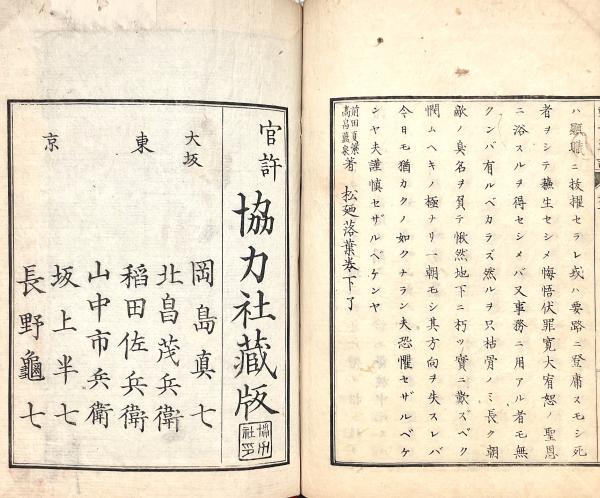 ハ顕職ニ抜擢セラレ或ハ要路ニ登庸スモシ死
者ヲシテ蘇生セシメ悔悟伏罪寛大宥恕ノ聖恩
ニ浴スルヲ得セシメバ又事務ニ用アル者モ無
クンバ有ルベカラズ然ルヲ只枯骨ノミ長ク朝
敵ノ臭名ヲ負テ愀然地下ニ朽ツ實ニ歎ズベク
憫ムヘキノ極ナリ一朝モシ其方向ヲ失スレバ
今日モ猶カクノ如クナラン夫恐懼セザルベケ
ンヤ夫謹慎セザルベケンヤ
前田夏繁
高畠藍泉 著 松廼落葉巻下了
官許 協力社藏版
協力社印
大坂 岡島真七
東 北畠茂兵衛
稲田佐兵衛
山中市兵衛
京 坂上半七
長野龜七